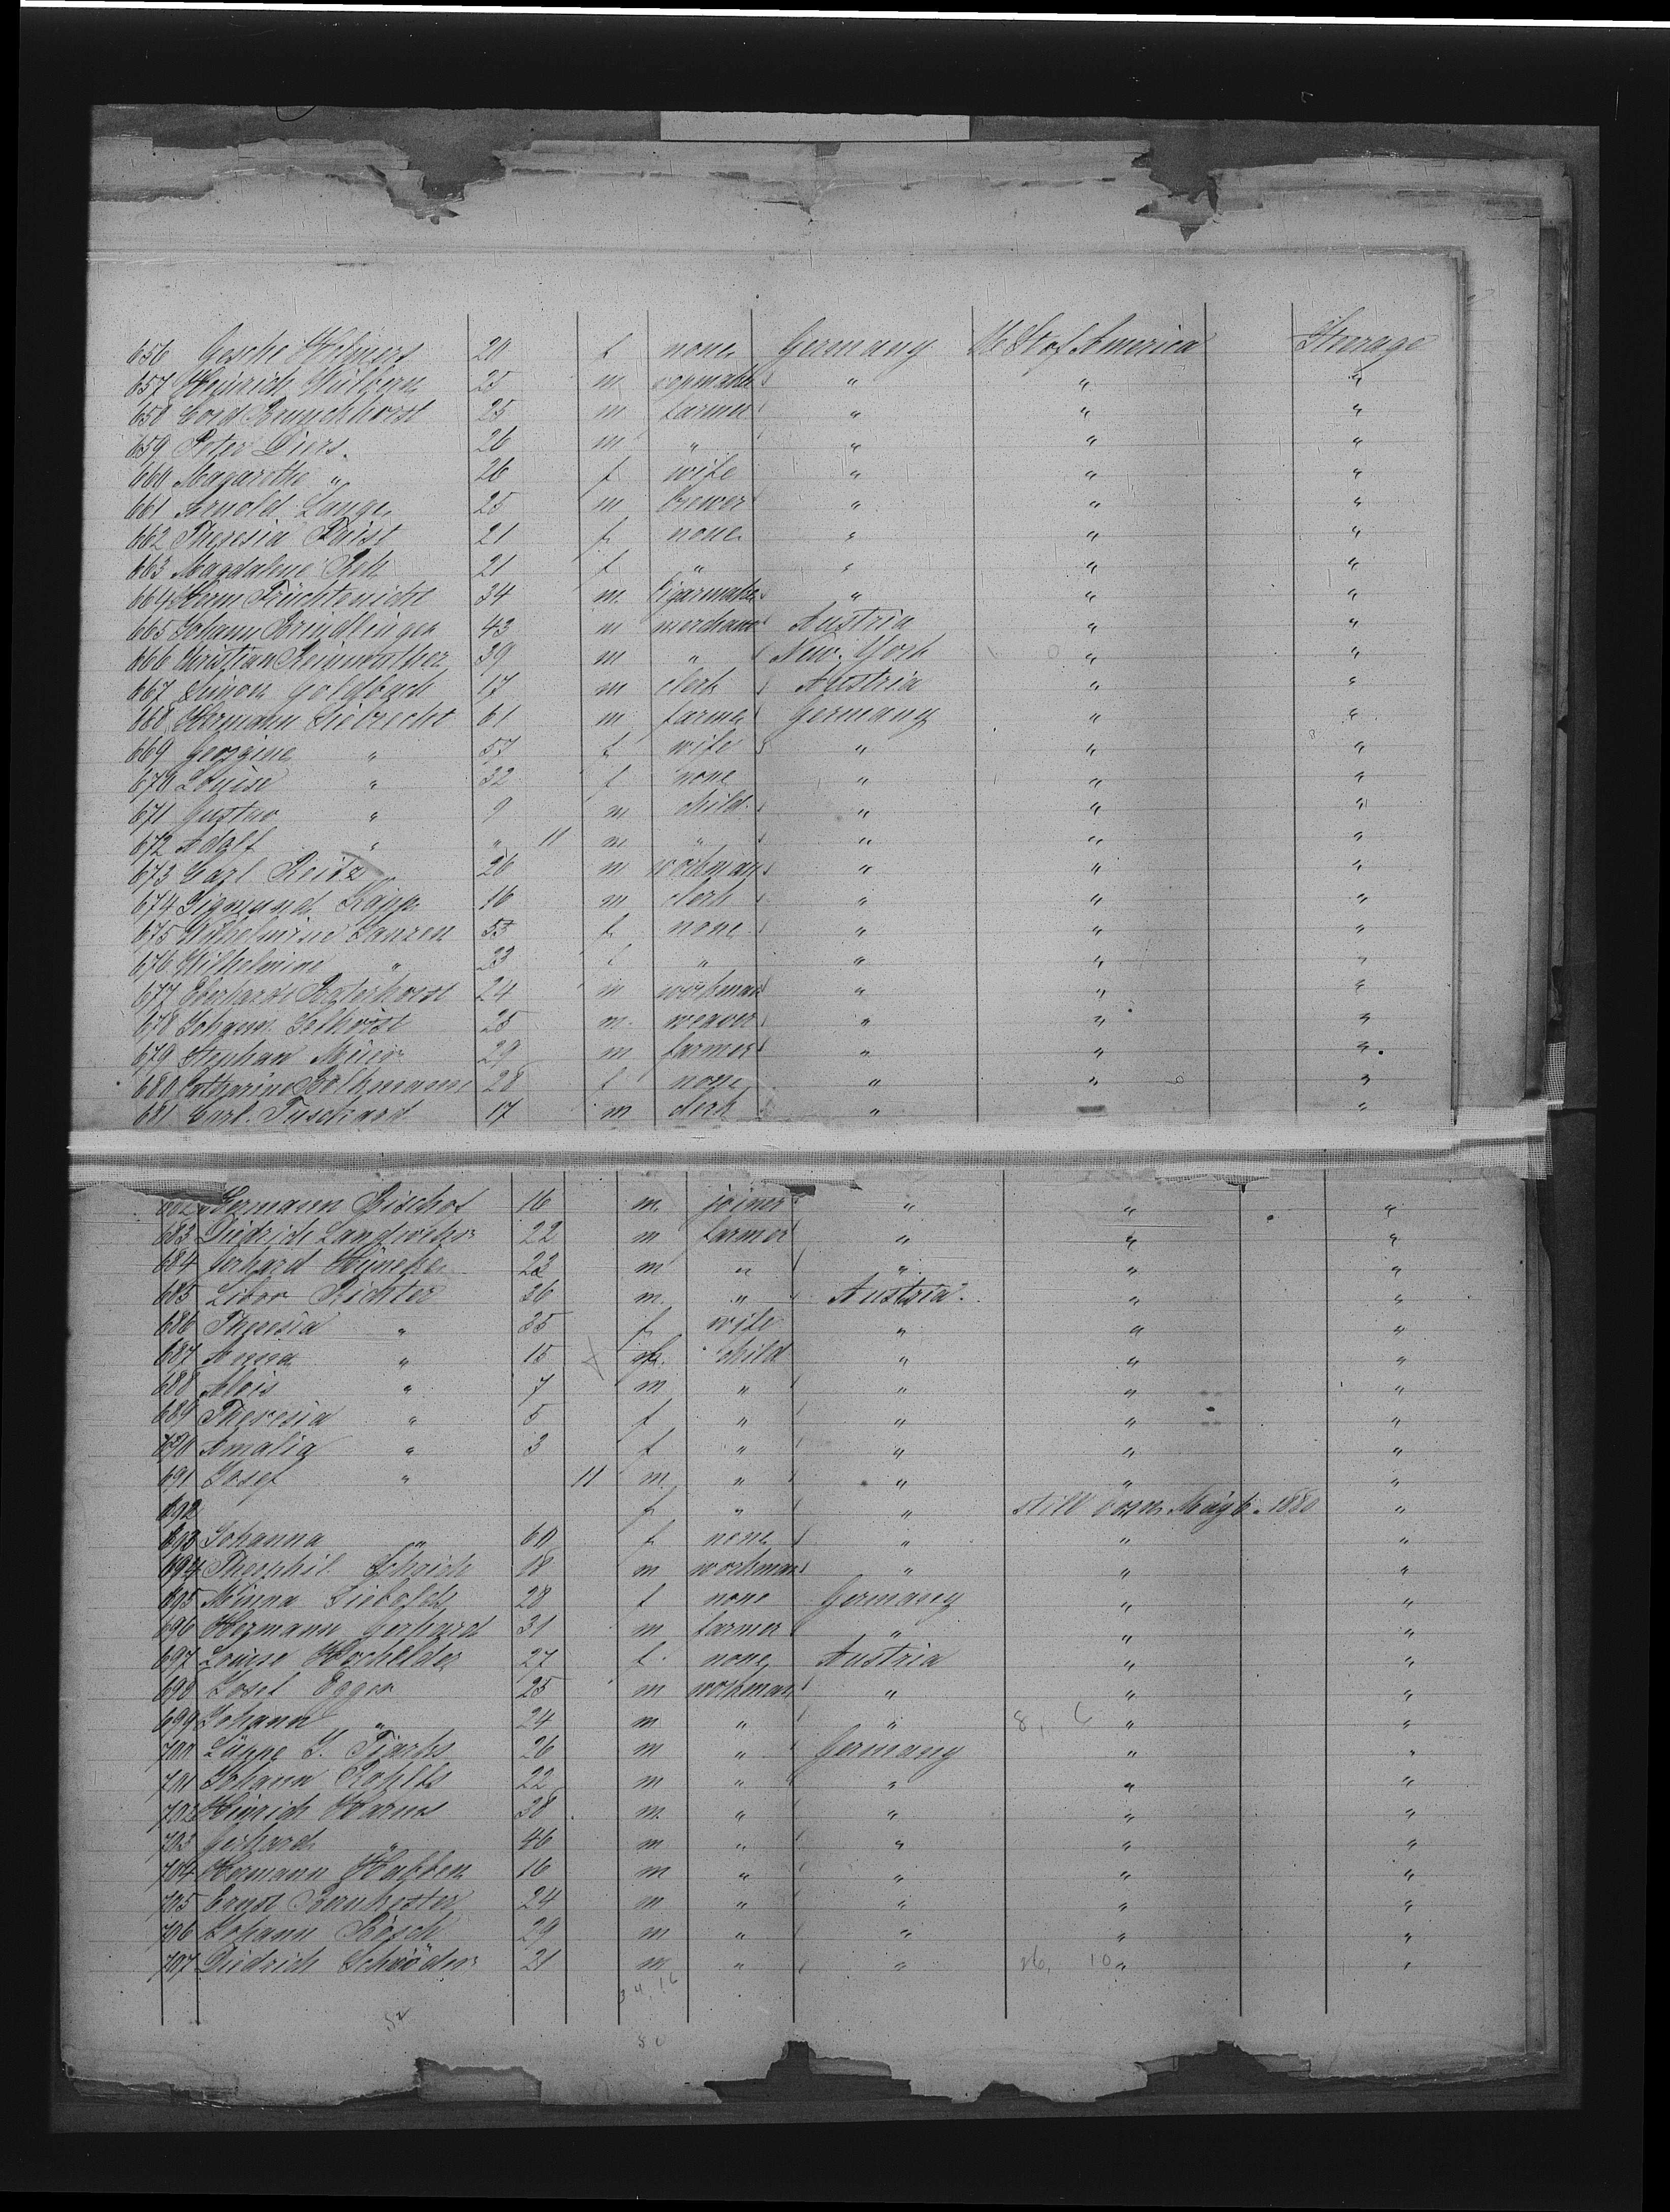 656 Gesche 20 f none Germany U St of America Steerage
657 Heinrich 25 m " " "
658 Cord Brunckhorst 25 m farmer " " "
659 Peter Diers. 26 m " " " "
660 Magarethe " 26 f wife " " "
661 Arnold Lange 25 m brewer " " "
662 Theresia Faist 21 f none " " "
663 Magdalene 21 f " " " "
664 Herm Früchtenicht 34 m. Cigarmaker " " "
665 Johann Brindlinger 43 m merchant Austria " "
666 Christian Reinmuther 39 m " New York " "
667 Simon Goldbach 17 m clerk Austria " "
668 Hermann Siebrecht 61 m farmer Germany " "
669 Georgine " 57 f wife " " "
670 Louise " 32 f none " " "
671 Gustav " 9 m child " " "
672 Adolf " " 11 m " " " "
673 Carl Reitz 26 m workman " " "
674 Sigmund 16 m clerk " " "
675 Wilhelmine Janzen 53 f none " " "
676 Wilhelmine " 23 f " " " "
677 Eberhard 24 m workman " " "
678 Johann Selhorst 25 m. weaver " " "
679 Stephan 29 m farmer " " "
680 Catharine Bolkmann 28 f none " " "
681 Carl 17 m clerk " "
682 Hermann Bischof 16 m. joiner " " "
683 Diedrich Landwehr 22 m farmer " " "
684 Gerhard Hüneker 23 m " " " "
685 Libor Richter 36 m. " Austria. " "
686 Theresia " 35 f wife " " "
687 Anna " 15 f. child " " "
688 Alois " 7 m " " " "
689 Theresia " 5 f " " " "
690 Amalia " 3 f " " " "
691 Josef " 11 m. " " " "
692 f " " still born May 6. 1880 "
693 Johanna " 60 f none " " "
694 Theophil 18 m workman " " "
695 Minna 28 f none Germany " "
696 Hermann Gerhard 31 m farmer " " "
697 Louise 27 f. none Austria " "
698 Josef Egger 25 m workman " " "
699 Johann " 24 m " " 8, 6 " "
700 Lüppe G. Tjarks 26 m " Germany " "
701 Johann Rohlfs 22 m " " " "
702 Hinrich Harms 38 m. " " " "
703 Gerhard " 46 m " " " "
704 Hermann Habben 16 m " " " "
705 Ernst 24 m " " " "
706 Johann Bösch 29 m " " " "
707 Diedrich Schröder 21 m " " 26, 10 " "
34, 16
50